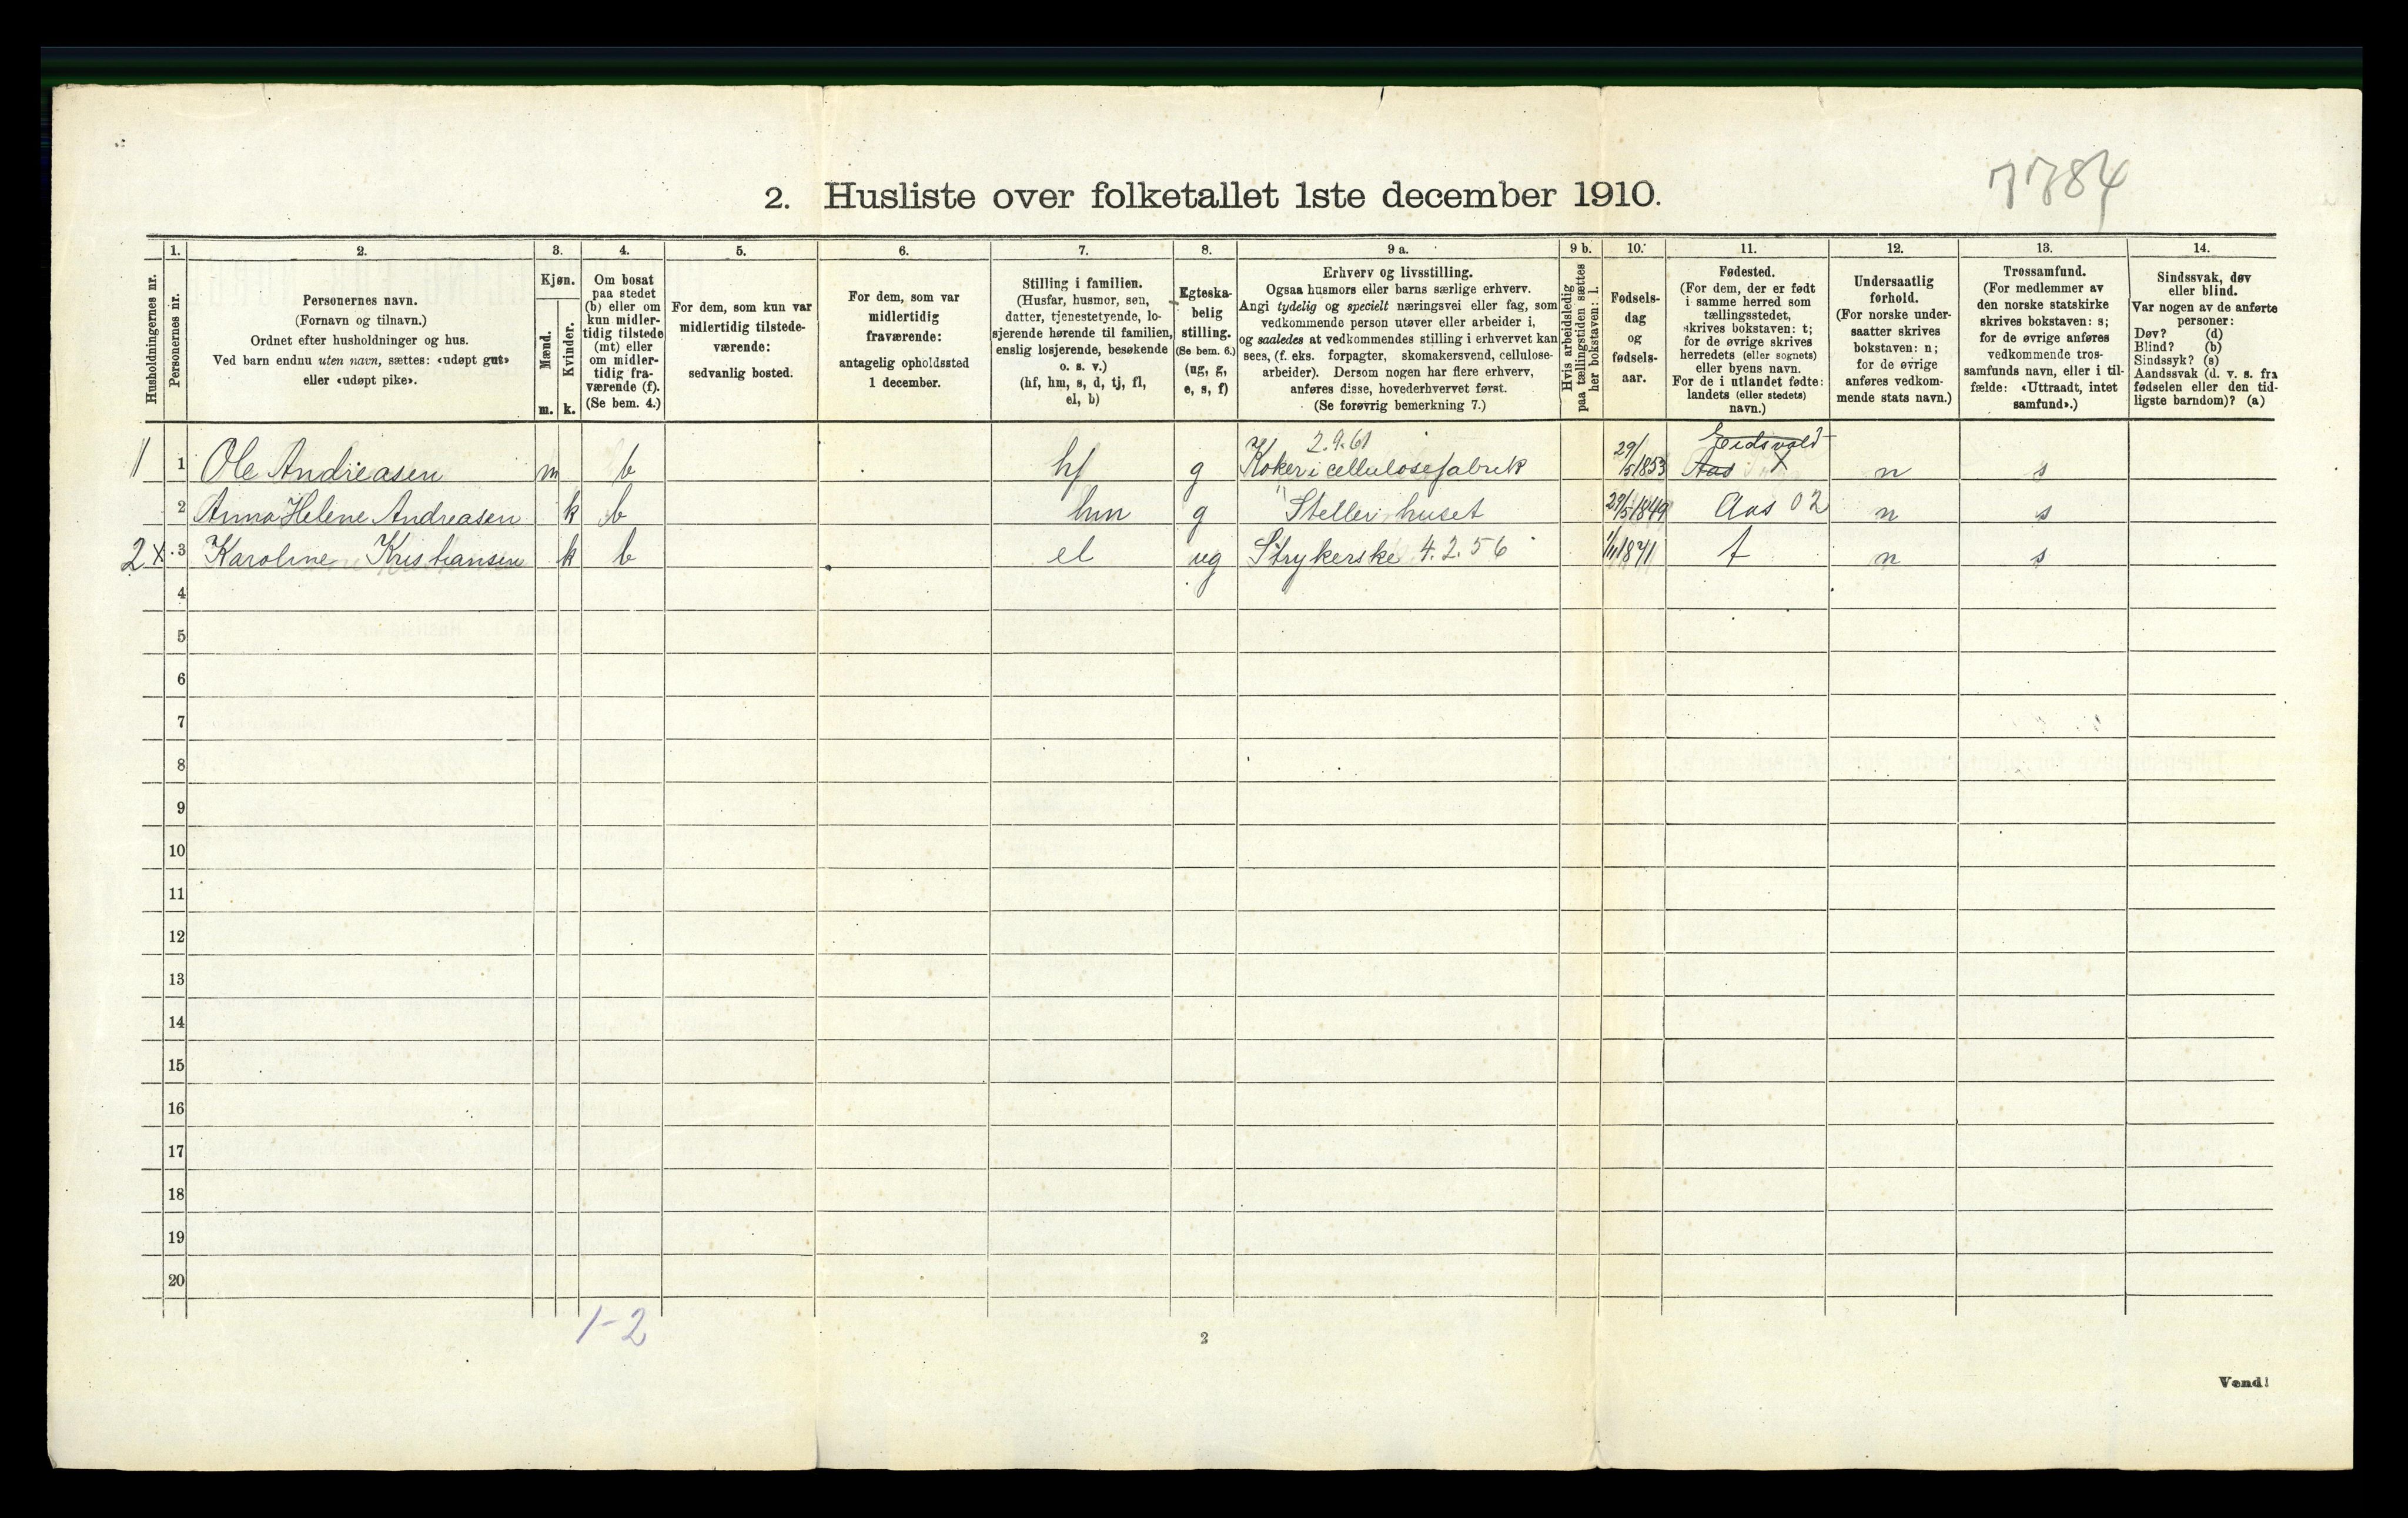 7784
2. Husliste over folketallet 1ste december 1910.
Husholdningernes nr.
1.
Personernes nr.
2.
Personernes navn.
(Fornavn og tilnavn.)
Ordnet efter husholdninger og hus.
Ved barn endnu uten navn, sættes: «udøpt gut»
eller «udøpt pike».
3.
Kjøn.
Mænd.
m.
Kvinder.
k.
4.
Om bosat
paa stedet
(b) eller om
kun midler-
tidig tilstede
(mt) eller
om midler-
tidig fra-
værende (f).
(Se bem. 4.)
5.
For dem, som kun var
midlertidig tilstede-
værende:
sedvanlig bosted.
6.
For dem, som var
midlertidig
fraværende:
antagelig opholdssted
1 december.
7.
Stilling i familien.
(Husfar, husmor, søn,
datter, tjenestetyende, lo-
sjerende hørende til familien,
enslig losjerende, besøkende
o. s. v.)
(hf, hm, s, d, tj, fl,
el, b)
8.
Egteska-
belig
stilling.
(Se bem. 6.)
(ug, g,
e, s, f)
9 a.
Erhverv og livsstilling.
Ogsaa husmors eller barns særlige erhverv.
Angi tydelig og specielt næringsvei eller fag, som
vedkommende person utøver eller arbeider i,
og saaledes at vedkommendes stilling i erhvervet kan
sees, (f. eks. forpagter, skomakersvend, cellulose-
arbeider). Dersom nogen har flere erhverv,
anføres disse, hovederhvervet først.
(Se forøvrig bemerkning 7.)
9 b.
Hvis arbeidsledig
paa tællingstiden sættes
her bokstaven: l.
10.
Fødsels-
dag
og
fødsels-
aar.
11.
Fødested.
(For dem, der er født
i samme herred som
tællingsstedet,
skrives bokstaven: t;
for de øvrige skrives
herredets (eller sognets)
eller byens navn.
For de i utlandet fødte:
landets (eller stedets)
navn.)
12.
Undersaatlig
forhold.
(For norske under-
saatter skrives
bokstaven: n;
for de øvrige
anføres vedkom-
mende stats navn.)
13.
Trossamfund.
(For medlemmer av
den norske statskirke
skrives bokstaven: s;
for de øvrige anføres
vedkommende tros-
samfunds navn, eller i til-
fælde: «Uttraadt, intet
samfund».)
14.
Sindssvak, døv
eller blind.
Var nogen av de anførte
personer:
Døv? (d)
Blind? (b)
Sindssyk? (s)
Aandssvak (d. v. s. fra
fødselen eller den tid-
ligste barndom)? (a)
2.9.61 Eidsvold
1 1 Ole Andreasen m b hf g Koker i cellulosefabrik 29/5 1853 Aas X n s
2 Anna Helene Andreasen k b hm g Stelle i huset 29/5 1849 Aas 02 n s
2 X 3 Karoline Kristiansen k b el ug Strykerske 4.2.56 1/11 1871 t n s
4
5
6
7
8
9
10
11
12
13
14
15
16
17
18
19
20
1-2
2
Vend!